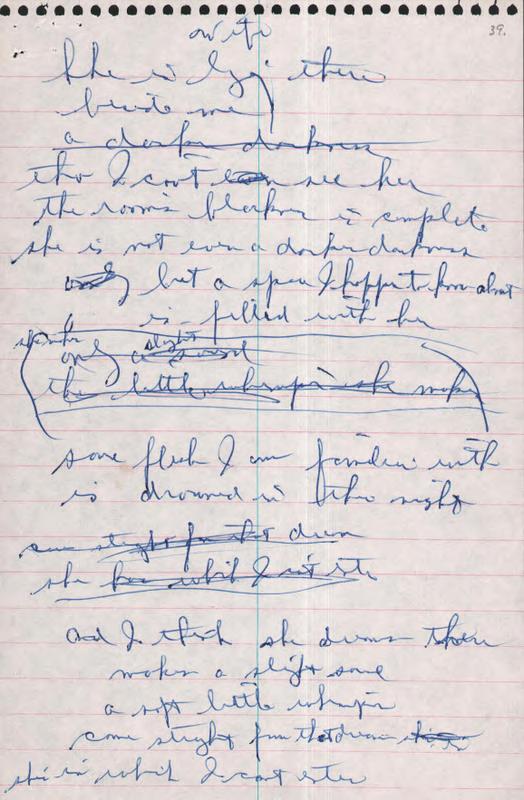 39.
my wife
She is lying there
beside me
a darker darkness
tho I can't even see her
the room's blackness is complete
she is not even a darker darkness
only but a space I happen to know about
is filled with her
only a slight sound
the little whimper she makes
some flesh I am familiar with
is drowned in the night
come straight from that dream
she has which I can't enter
and I think she dreams there
makes a slight sound
a soft little whimper
come straight from that dream
she's in which I can't enter